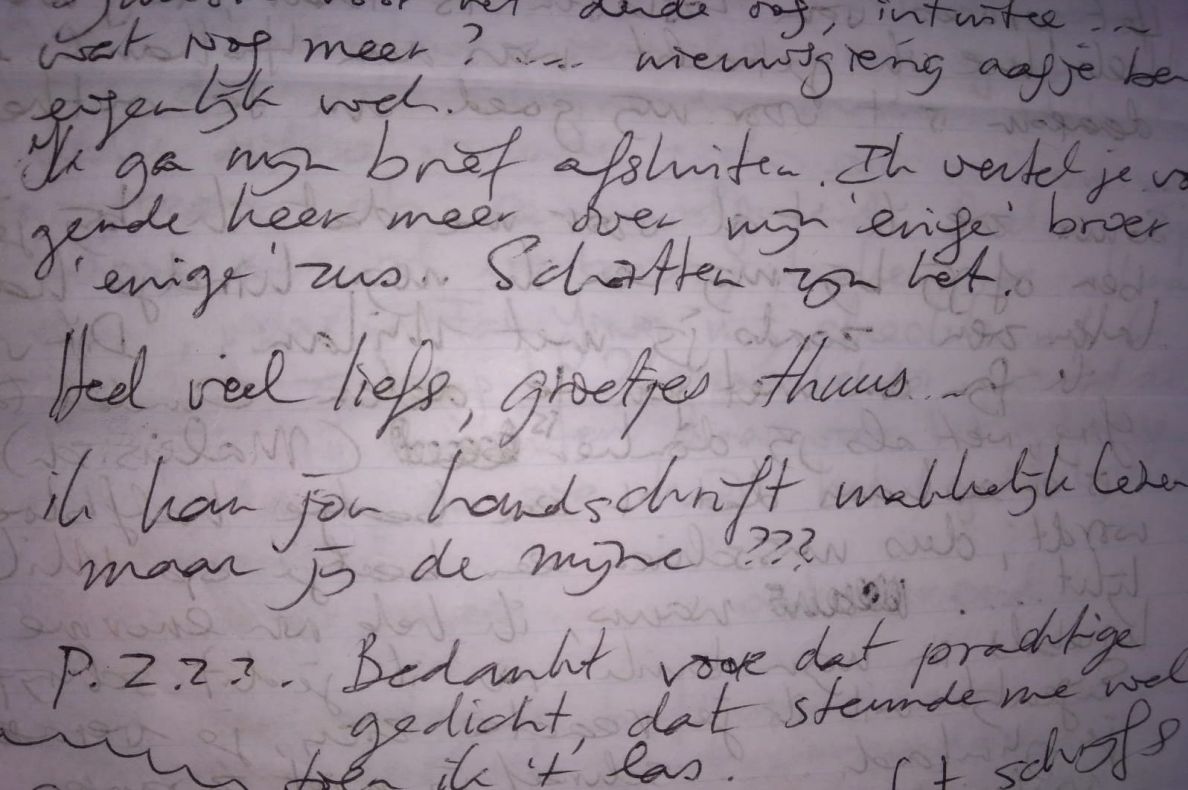 voor het derde oog, intuitee ...
wat nog meer? ..... nieuwsgierig aagje ben
eigenlijk wel.
Ik ga mijn brief afsluiten. Ik vertel je vo
gende keer meer over mijn 'enige' broer
'enige' zus.. Schatten zijn het.
Heel veel liefs, groetjes thuus...
ik kan jou handschrift makkelijk lezen
maar jij de mijne ???
P.S.S.S. Bedankt voor dat prachtige
gedicht, dat steunde me wel
toen ik 't las. (t schrijfs